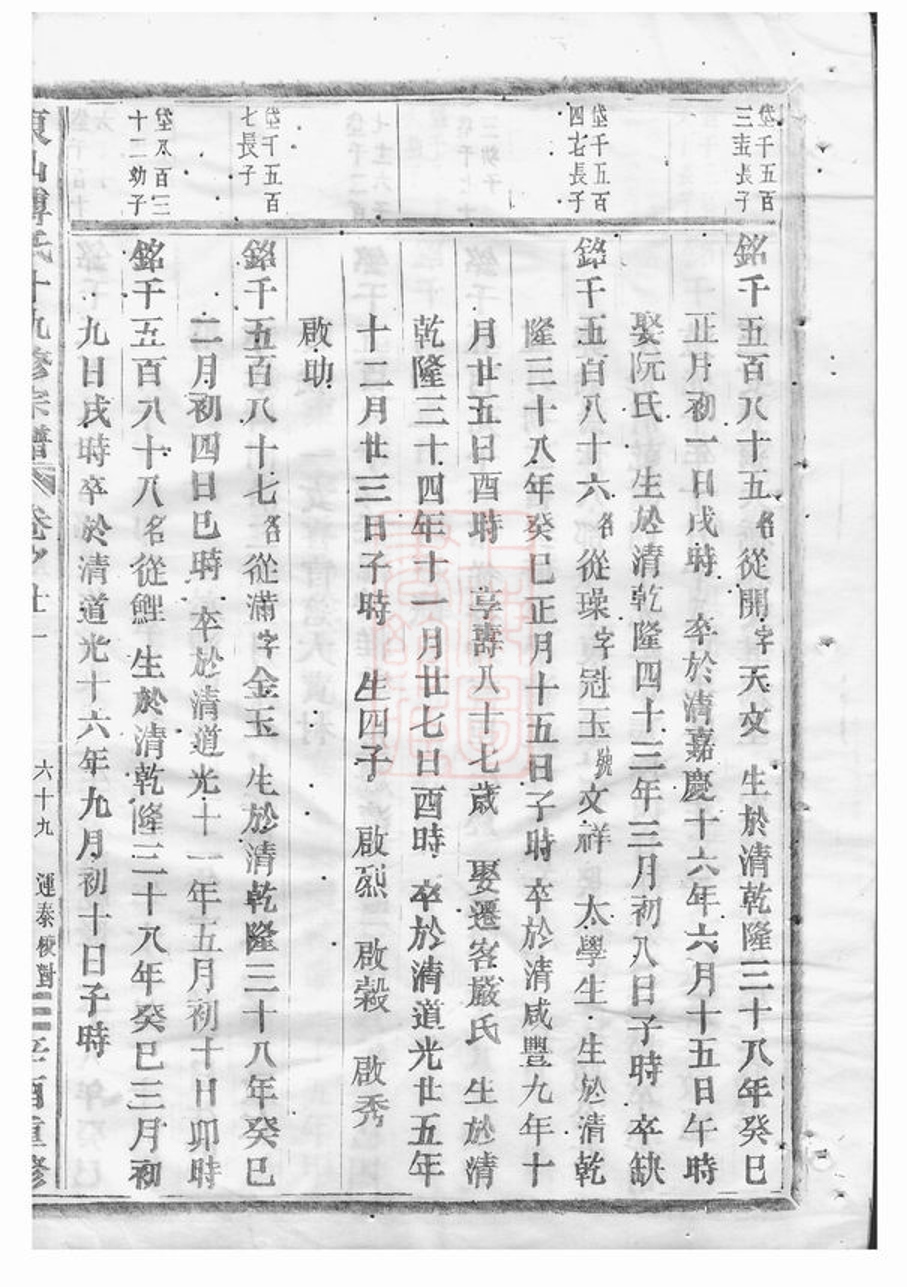 岱千五百
三 長子
銘千五百八十五名從開字天文 生於清乾隆三十八年癸巳
正月初一日戌時 卒於清嘉慶十六年六月十五日午時
娶阮氏 生於清乾隆四十三年三月初八日子時 卒缺
岱千五百
四 長子
銘千五百八十六名從璪字冠玉號文祥 太學生 生於清乾
隆三十八年癸巳正月十五日子時 卒於清咸豐九年十
月廿五日酉時 享壽八十七歲 娶遷客嚴氏 生於清
乾隆三十四年十一月廿七日酉時 卒於清道光廿五年
十二月廿三日子時 生四子 啟烈 啟穀 啟秀
啟助
岱千五百
七長子
銘千五百八十七名從滿字金玉 生於清乾隆三十八年癸巳
二月初四日巳時 卒於清道光十一年五月初十日卯時
岱八百三
十二幼子
銘千五百八十八名從鯉 生於清乾隆三十八年癸巳三月初
九日戌時卒於清道光十六年九月初十日子時
東山傅氏十九修宗譜 卷之廿一 六十九 運泰校對 辛酉重修